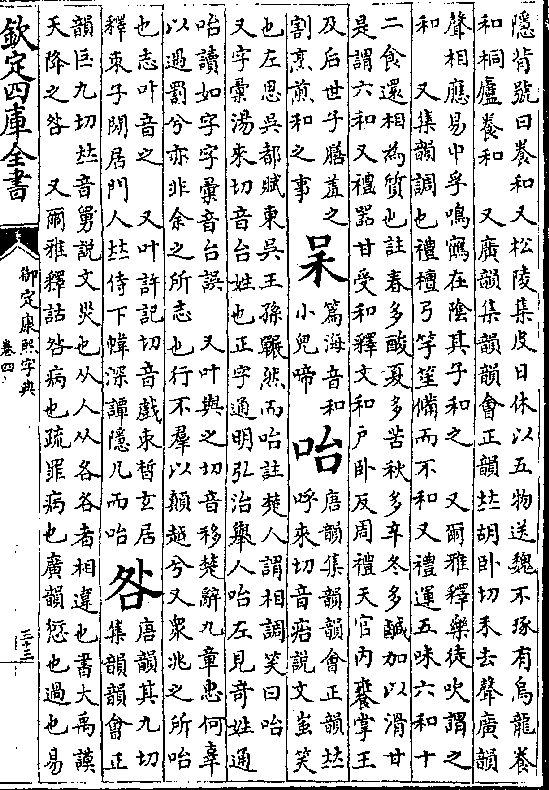 隱背號曰養和又松陵集皮日休以五物送魏不琢有烏龍養
和桐廬養和　又廣韻集韻韻會正韻𠀤胡卧切禾去聲廣韻
聲相應易中孚鳴鶴在陰其子和之　又爾雅釋樂徒吹謂之
和　又集韻調也禮檀弓竽笙備而不和又禮運五味六和十
二食還相為質也註春多酸夏多苦秋多辛冬多鹹加以滑甘
是謂六和又禮器甘受和釋文和戶卧反周禮天官內饔掌王
及后世子膳羞之
割烹煎和之事
呆
篇海音和
小兒啼
咍
唐韻集韻韻會正韻𠀤
呼來切音㾂說文蚩笑
也左思吳都賦東吳王孫囅然而咍註楚人謂相調笑曰咍
又字彙湯來切音台姓也正字通明弘治舉人咍左見奇姓通
咍讀如字字彙音台誤　又叶與之切音移楚辭九章忠何辜
以過罰兮亦非余之所志也行不羣以顛越兮又衆兆之所咍
也志叶音之　又叶許記切音戲朿晳玄居
釋朿子閒居門人𠀤侍下幃深譚隱几而咍
咎
唐韻其九切
集韻韻會正
韻巨九切𠀤音舅說文災也从人从各各者相違也書大禹謨
天降之咎　又爾雅釋詁咎病也疏罪病也廣韻愆也過也易
欽定四庫全書
御定康熙字典
卷四
三十三